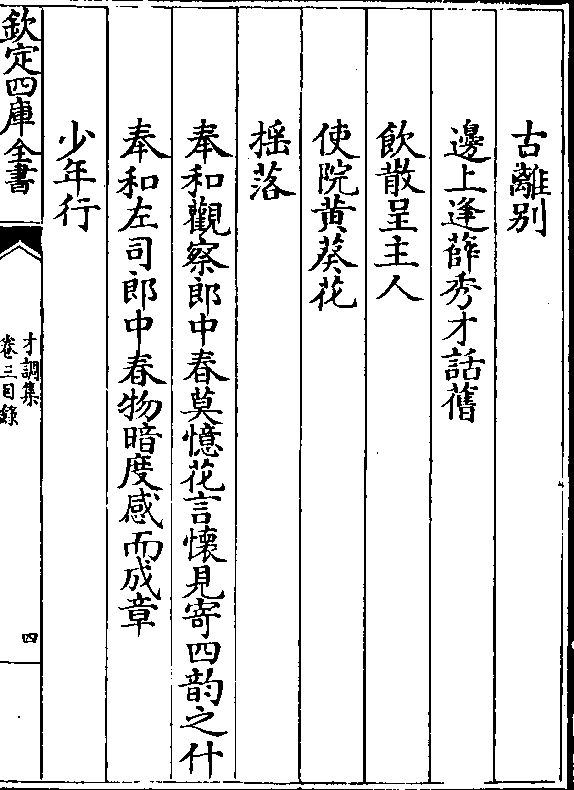 古離别
邊上逢薛秀才話舊
飲散呈主人
使院黄葵花
揺落
奉和觀察郎中春莫憶花言懐見寄四韵之什
奉和左司郎中春物暗度感而成章
少年行
欽定四庫全書
才調集
卷三目錄
四